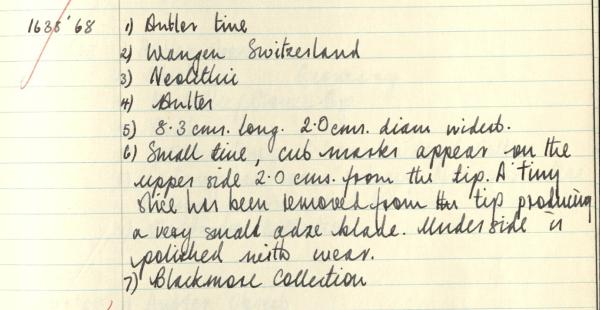 1638'68 1) Antler tine
2) Wangen Switzerland
3) Neolithic
4) Antler
5) 8.3 cms. long. 2.0 cms. diam widest.
6) Small tine, cut marks appear on the
upper side 2.0 cms. from the tip. A tiny
slice has been removed from the tip producing
a very small adze blade. Underside is
polished with wear.
7) Blackmore Collection